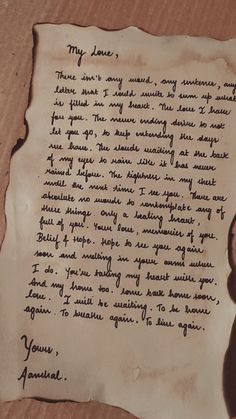 My Love,
There isn't any word, any sentence, any
letter that I could write to sum up what
is filled in my heart. The love I have
for you. The never ending desire to not
let you go, to keep extending the days
we have. The clouds waiting at the back
of my eyes to rain like it has never
rained before. The tightness in my chest
until we next time I see you. There are
absolute no words to contemplate any of
these things. Only a beating heart,
full of you. Your love, memories of you.
Belief & Hope. Hope to see you again
soon and melting in your arms when
I do. You're taking my heart with you.
And my home too. Come back home soon,
love. I will be waiting. To be home
again. To breathe again. To live again.
Yours,
Aanchal.